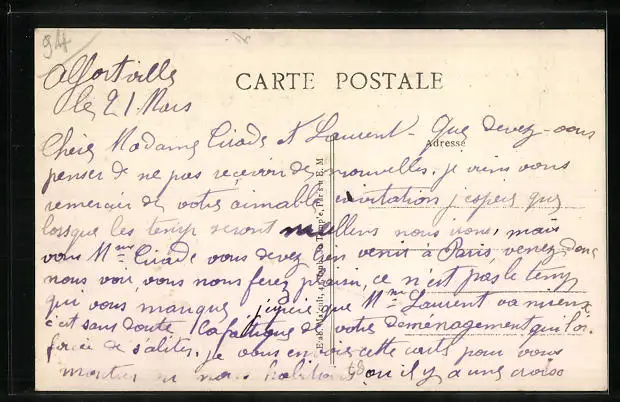 94
Alfortville
CARTE POSTALE
le 21 Mars
Adresse
Chère Madame Cirade et Laurent - Que devez-vous
penser de ne pas recevoir de nouvelles. je viens vous
remercier de votre aimable invitation j'espere que
lorsque les temps seront meilleurs nous irons, mais
vous Mme Cirade vous devez bien venir à Paris, venez donc
nous voir, vous nous ferez plaisir, ce n'est pas le temps
qui vous manque. j'espère que Mme Laurent va mieux
c'est sans doute la fatigue de votre déménagement qui l'a
forcée de s'aliter, je vous envoie cette carte pour vous
montrer ou nous habitons ou il y a une croix